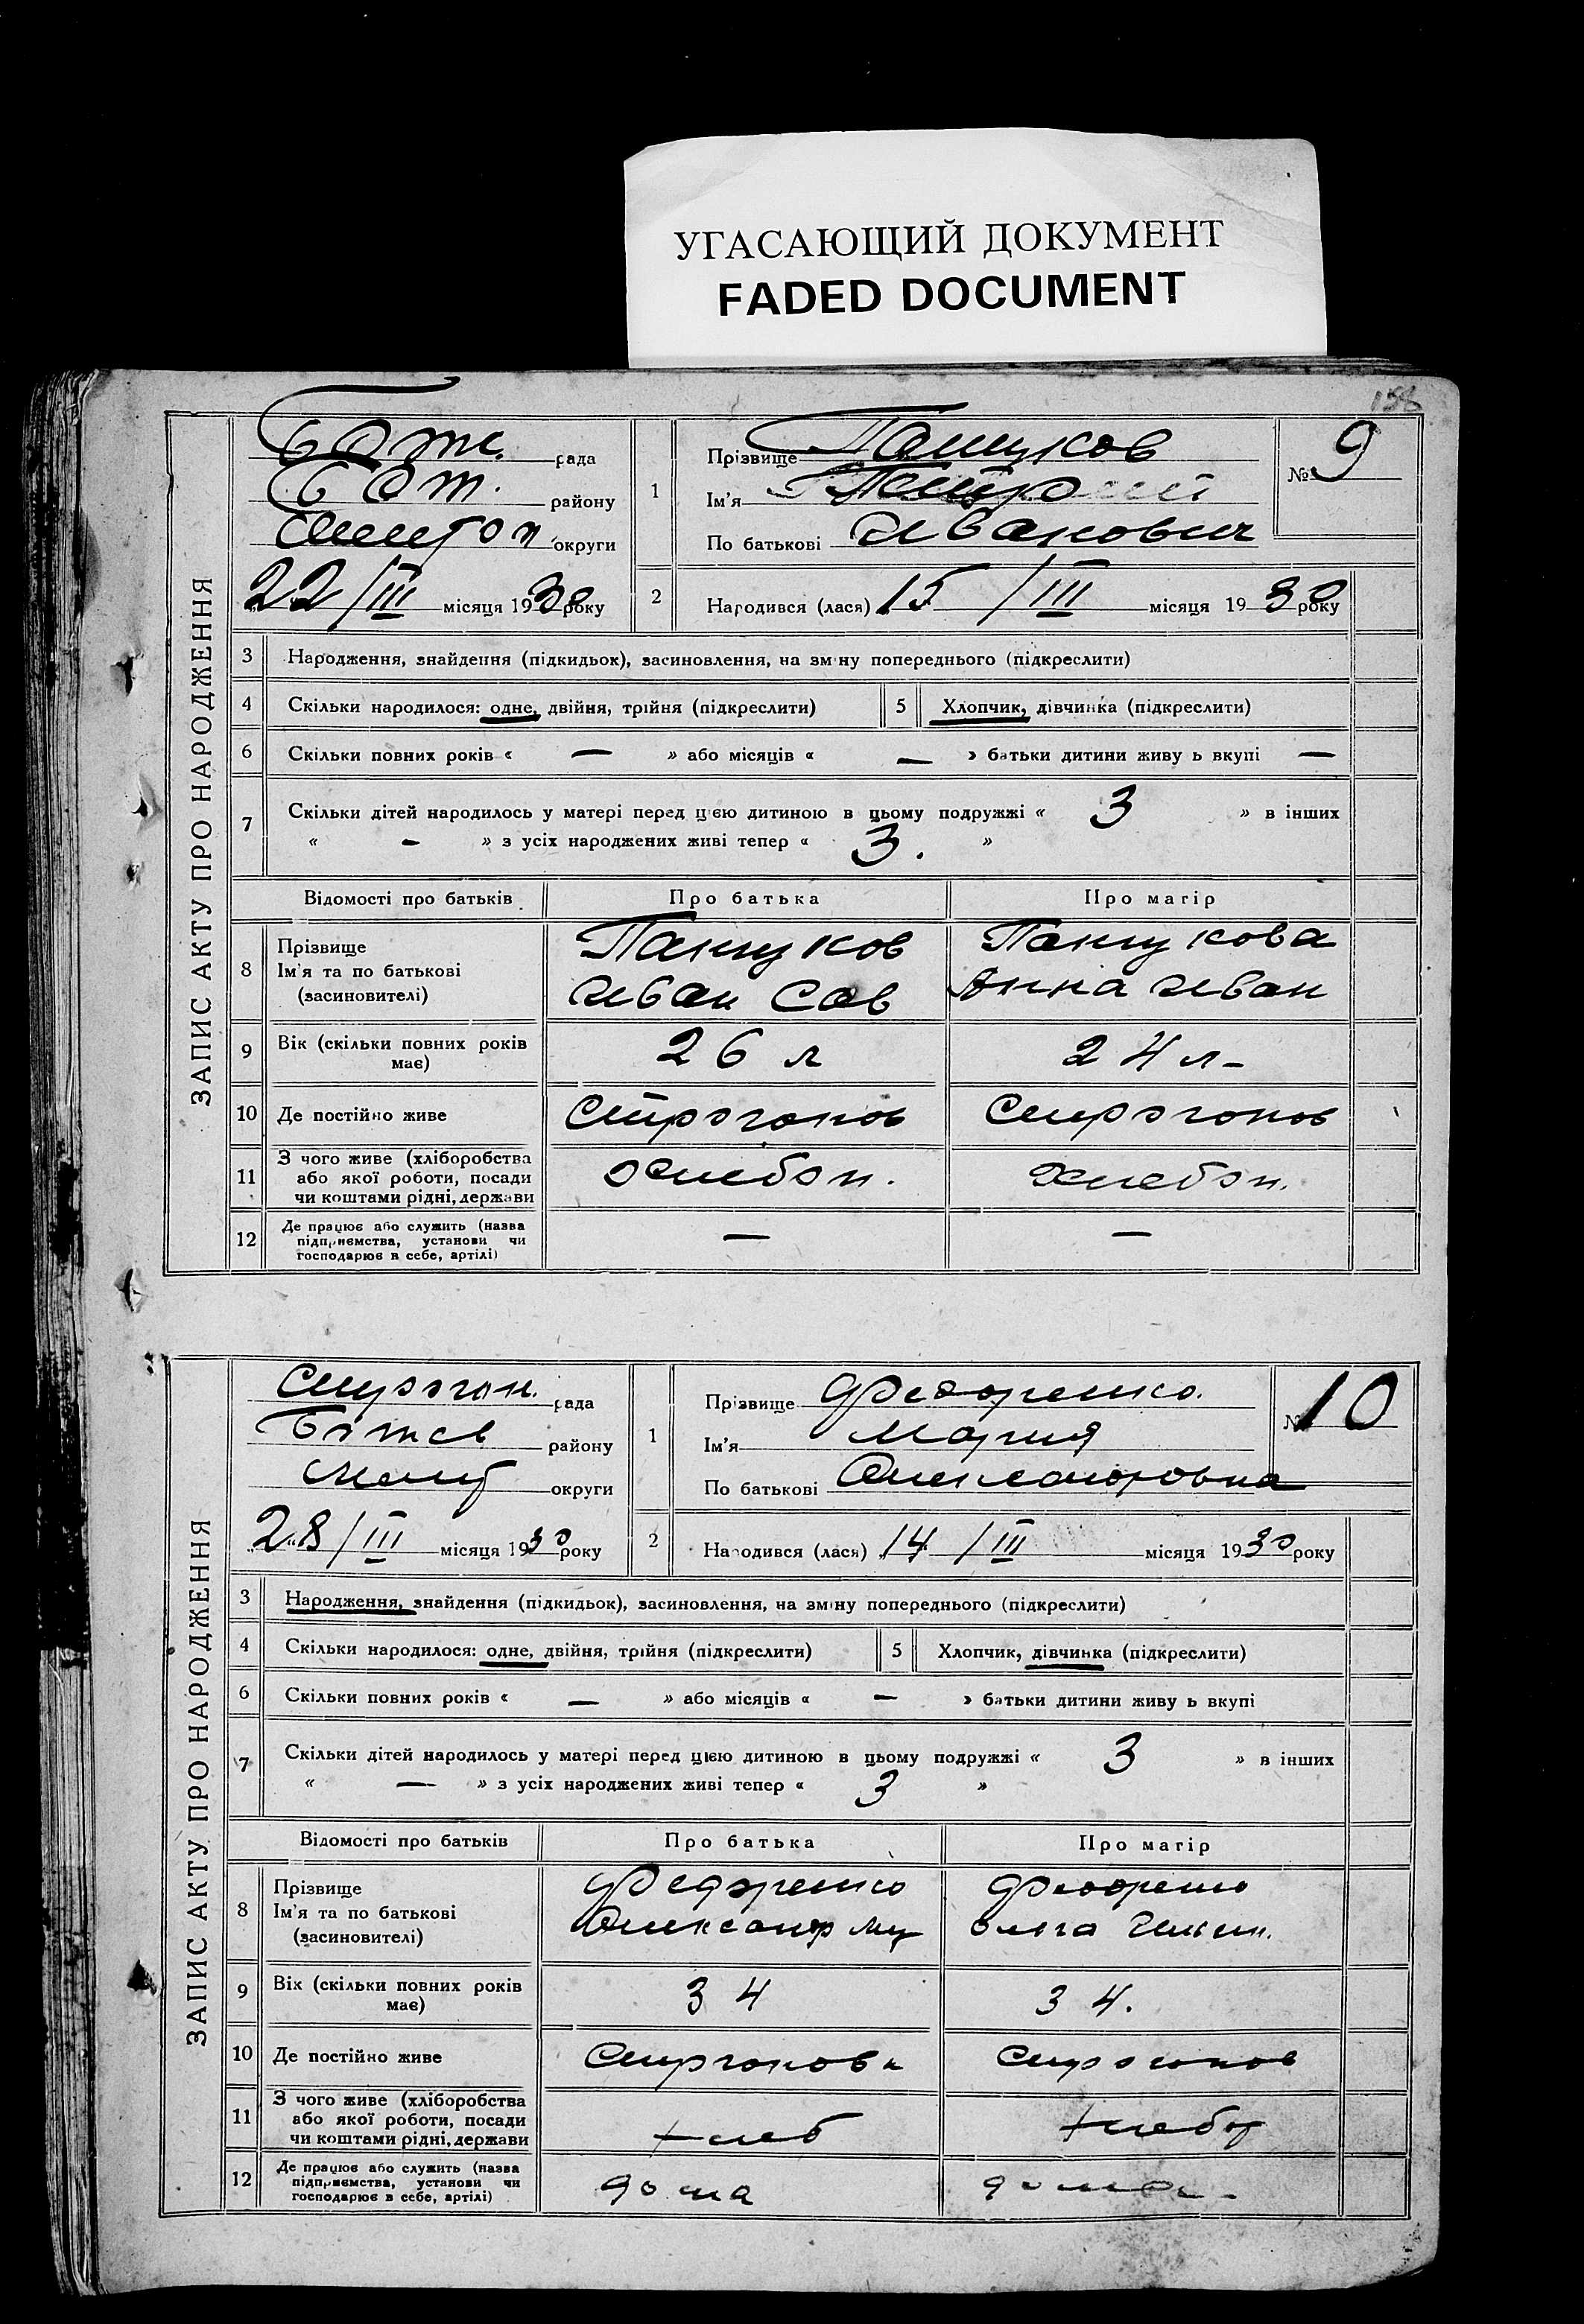 УГАСАЮЩИЙ ДОКУМЕНТ
FADED DOCUMENT
158
ЗАПИС АКТУ ПРО НАРОДЖЕННЯ
рада
району
округи
22/III місяця 1930 року
1 Прізвище
Ім'я
По батькові Иванович
№ 9
2 Народився (лася) 15/III місяця 1930 року
3 Народження, знайдення (підкидьок), засиновлення, на зміну попереднього (підкреслити)
4 Скільки народилося: одне, двійня, трійня (підкреслити)
5 Хлопчик, дівчинка (підкреслити)
6 Скільки повних років « — » або місяців « — » батьки дитини живу ь вкупі —
7 Скільки дітей народилось у матері перед цією дитиною в цьому подружжі « 3 » в інших
« - » з усіх народжених живі тепер « 3. »
Відомості про батьків
Про батька
Про матір
8 Прізвище
Ім'я та по батькові
(засиновителі)
Иван Сав
Анна Иван
9 Вік (скільки повних років
має)
26 л
24 л-
10 Де постійно живе
Строганов
Строганов
11 З чого живе (хліборобства
або якої роботи, посади
чи коштами рідні, держави
Хлебоп.
Хлебоп.
12 Де працює або служить (назва
підприємства, установи чи
господарює в себе, артілі)
—
—
ЗАПИС АКТУ ПРО НАРОДЖЕННЯ
Строган. рада
району
Мелит округи
28/III місяця 1930 року
1 Прізвище Федоренко
Ім'я Мария
По батькові Александровна
№ 10
2 Народився (лася) 14/III місяця 1930 року
3 Народження, знайдення (підкидьок), засиновлення, на зміну попереднього (підкреслити)
4 Скільки народилося: одне, двійня, трійня (підкреслити)
5 Хлопчик, дівчинка (підкреслити)
6 Скільки повних років « — » або місяців « — » батьки дитини живу ь вкупі
7 Скільки дітей народилось у матері перед цією дитиною в цьому подружжі « 3 » в інших
« — » з усіх народжених живі тепер « 3 »
Відомості про батьків
Про батька
Про матір
8 Прізвище
Ім'я та по батькові
(засиновителі)
Федоренко
Александр
Федоренко
Ольга
9 Вік (скільки повних років
має)
34
34.
10 Де постійно живе
Строгановк
Строганов
11 З чого живе (хліборобства
або якої роботи, посади
чи коштами рідні, держави
хлеб
хлебор
12 Де працює або служить (назва
підприємства, установи чи
господарює в себе, артілі)
дома
дома -